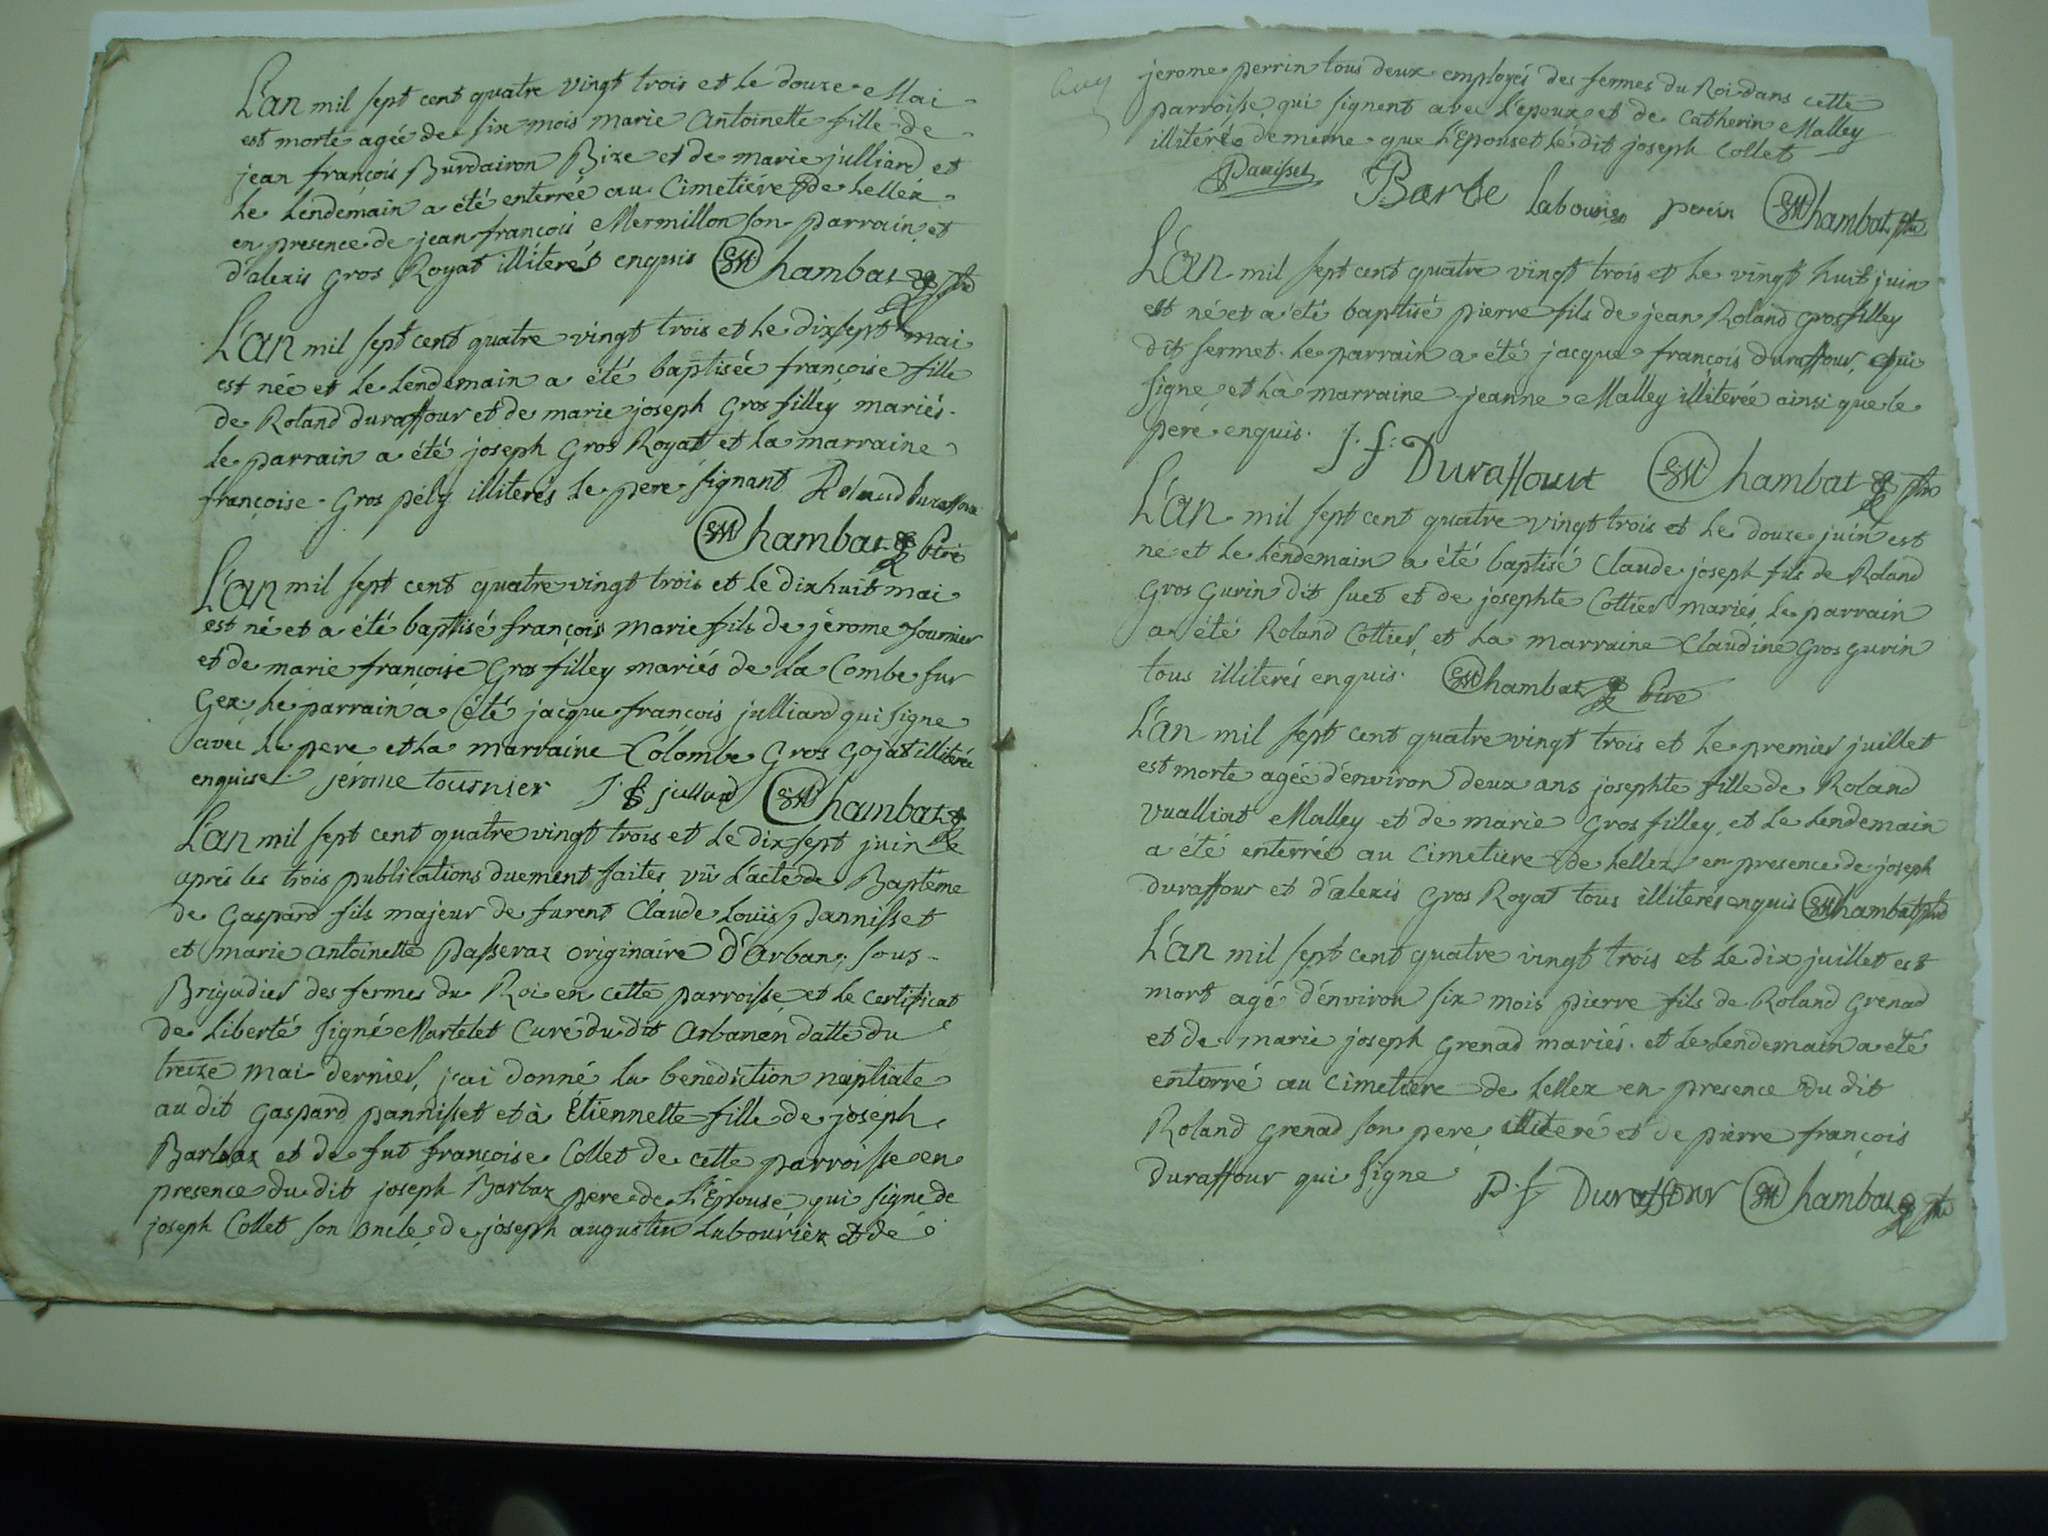 L'an mil sept cent quatre vingt trois et le douze Mai
est morte agée de six mois marie Antoinette fille de
jean françois Burdairon Bize et de marie julliard et
le lendemain a été enterrée au Cimetiére de Lellex
en presence de jean françois Mermillon son parrain et
d'alexis Gros Royat illiterés enquis Chambat ptre
L'an mil sept cent quatre vingt trois et le dix sept mai
est née et le lendemain a été baptisée françoise fille
de Roland duraffour et de marie joseph Gros filley mariés.
le parrain a été joseph Gros Royat et la marraine
françoise Gros pély illiterés le pere signant Roland Duraffour
Chambat ptre
L'an mil sept cent quatre vingt trois et le dix huit mai
est né et a été baptisé françois Marie fils de jérome Tournier
et de marie françoise Gros filley mariés de la Combe sur
Gex le parrain a été jacque françois julliard qui signe
avec le pere et la marraine Colombe Gros Gojat illiterée
enquise. jérome tournier J. f julliard Chambat
L'an mil sept cent quatre vingt trois et le dix sept juin
aprés les trois publications duement faites vû l'acte de Baptême
de Gaspard fils majeur de furent Claude Louis Pannisset
et marie Antoinette Passeraz originaire d'Arban, sous-
Brigadier des fermes du Roi en cette parroisse et le certificat
de liberté signé Martelet Curé du dit Arban en datte du
treize mai dernier, j'ai donné la benediction nuptiale
au dit Gaspard pannisset et à Étiennette fille de joseph
Barbaz et de fut françoise Collet de cette parroisse en
presence du dit joseph Barbaz pere de l'Épouse qui signe de
joseph Collet son oncle, de joseph augustin Labouriér et de
jerome perrin tous deux employés des fermes du Roi dans cette
parroisse qui signent avec l'epoux et de Catherin Malley
illiteré de meme que l'Epouse et le dit joseph Collet
Panisset Barbe Labourier perrin Chambat ptre
L'an mil sept cent quatre vingt trois et le vingt huit juin
est né et a été baptisé pierre fils de jean Roland Gros filley
dit fermet. le parrain a été jacque françois duraffour, qui
signe et la marraine jeanne Malley illiterée ainsi que le
pere enquis. J. f: Duraffour Chambat ptre
L'an mil sept cent quatre vingt trois et le douze juin est
né et le lendemain a été baptisé Claude joseph fils de Roland
Gros Gurin dit Suet et de josephte Cottier mariés, le parrain
a été Roland Cottier, et la marraine Claudine Gros gurin
tous illiterés enquis. Chambat ptre
L'an mil sept cent quatre vingt trois et le premier juillet
est morte agée d'environ deux ans josephte fille de Roland
Vualliat Malley et de marie Gros filley, et le lendemain
a été enterrée au Cimetiere de Lellex en presence de joseph
duraffour et d'alexis Gros Royat tous illiterés enquis Chambat ptre
L'an mil sept cent quatre vingt trois et le dix juillet est
mort agé d'environ six mois pierre fils de Roland Grenad
et de marie joseph Grenad mariés. et le lendemain a été
enterré au Cimetiere de Lellex en presence du dit
Roland Grenad son pere illiteré et de pierre françois
duraffour qui signe P. f Duraffour Chambat ptre